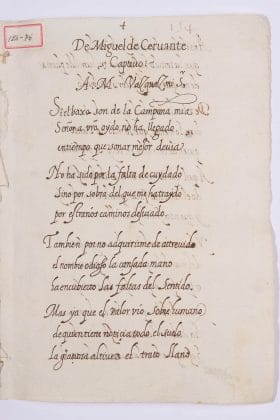 4
De Miguel de Ceruante
Captiuo:
A M. Vazquez mi S.
Si el baxo son de la Campoña mia
Señor a vro oydo no ha llegado
en tiempo que sonar mejor deuia
No ha sido por la falta de cuydado
Sino por sobra del que me ha traydo
por estraños caminos desuiado
Tambien por no adquirirme de atreuido
el nombre odioso la cansada mano
ha encubierto las faltas del sentido
Mas ya que el valor vro sobre humano
de quien tiene noticia todo el suelo
la graciosa altiuez el trato llano